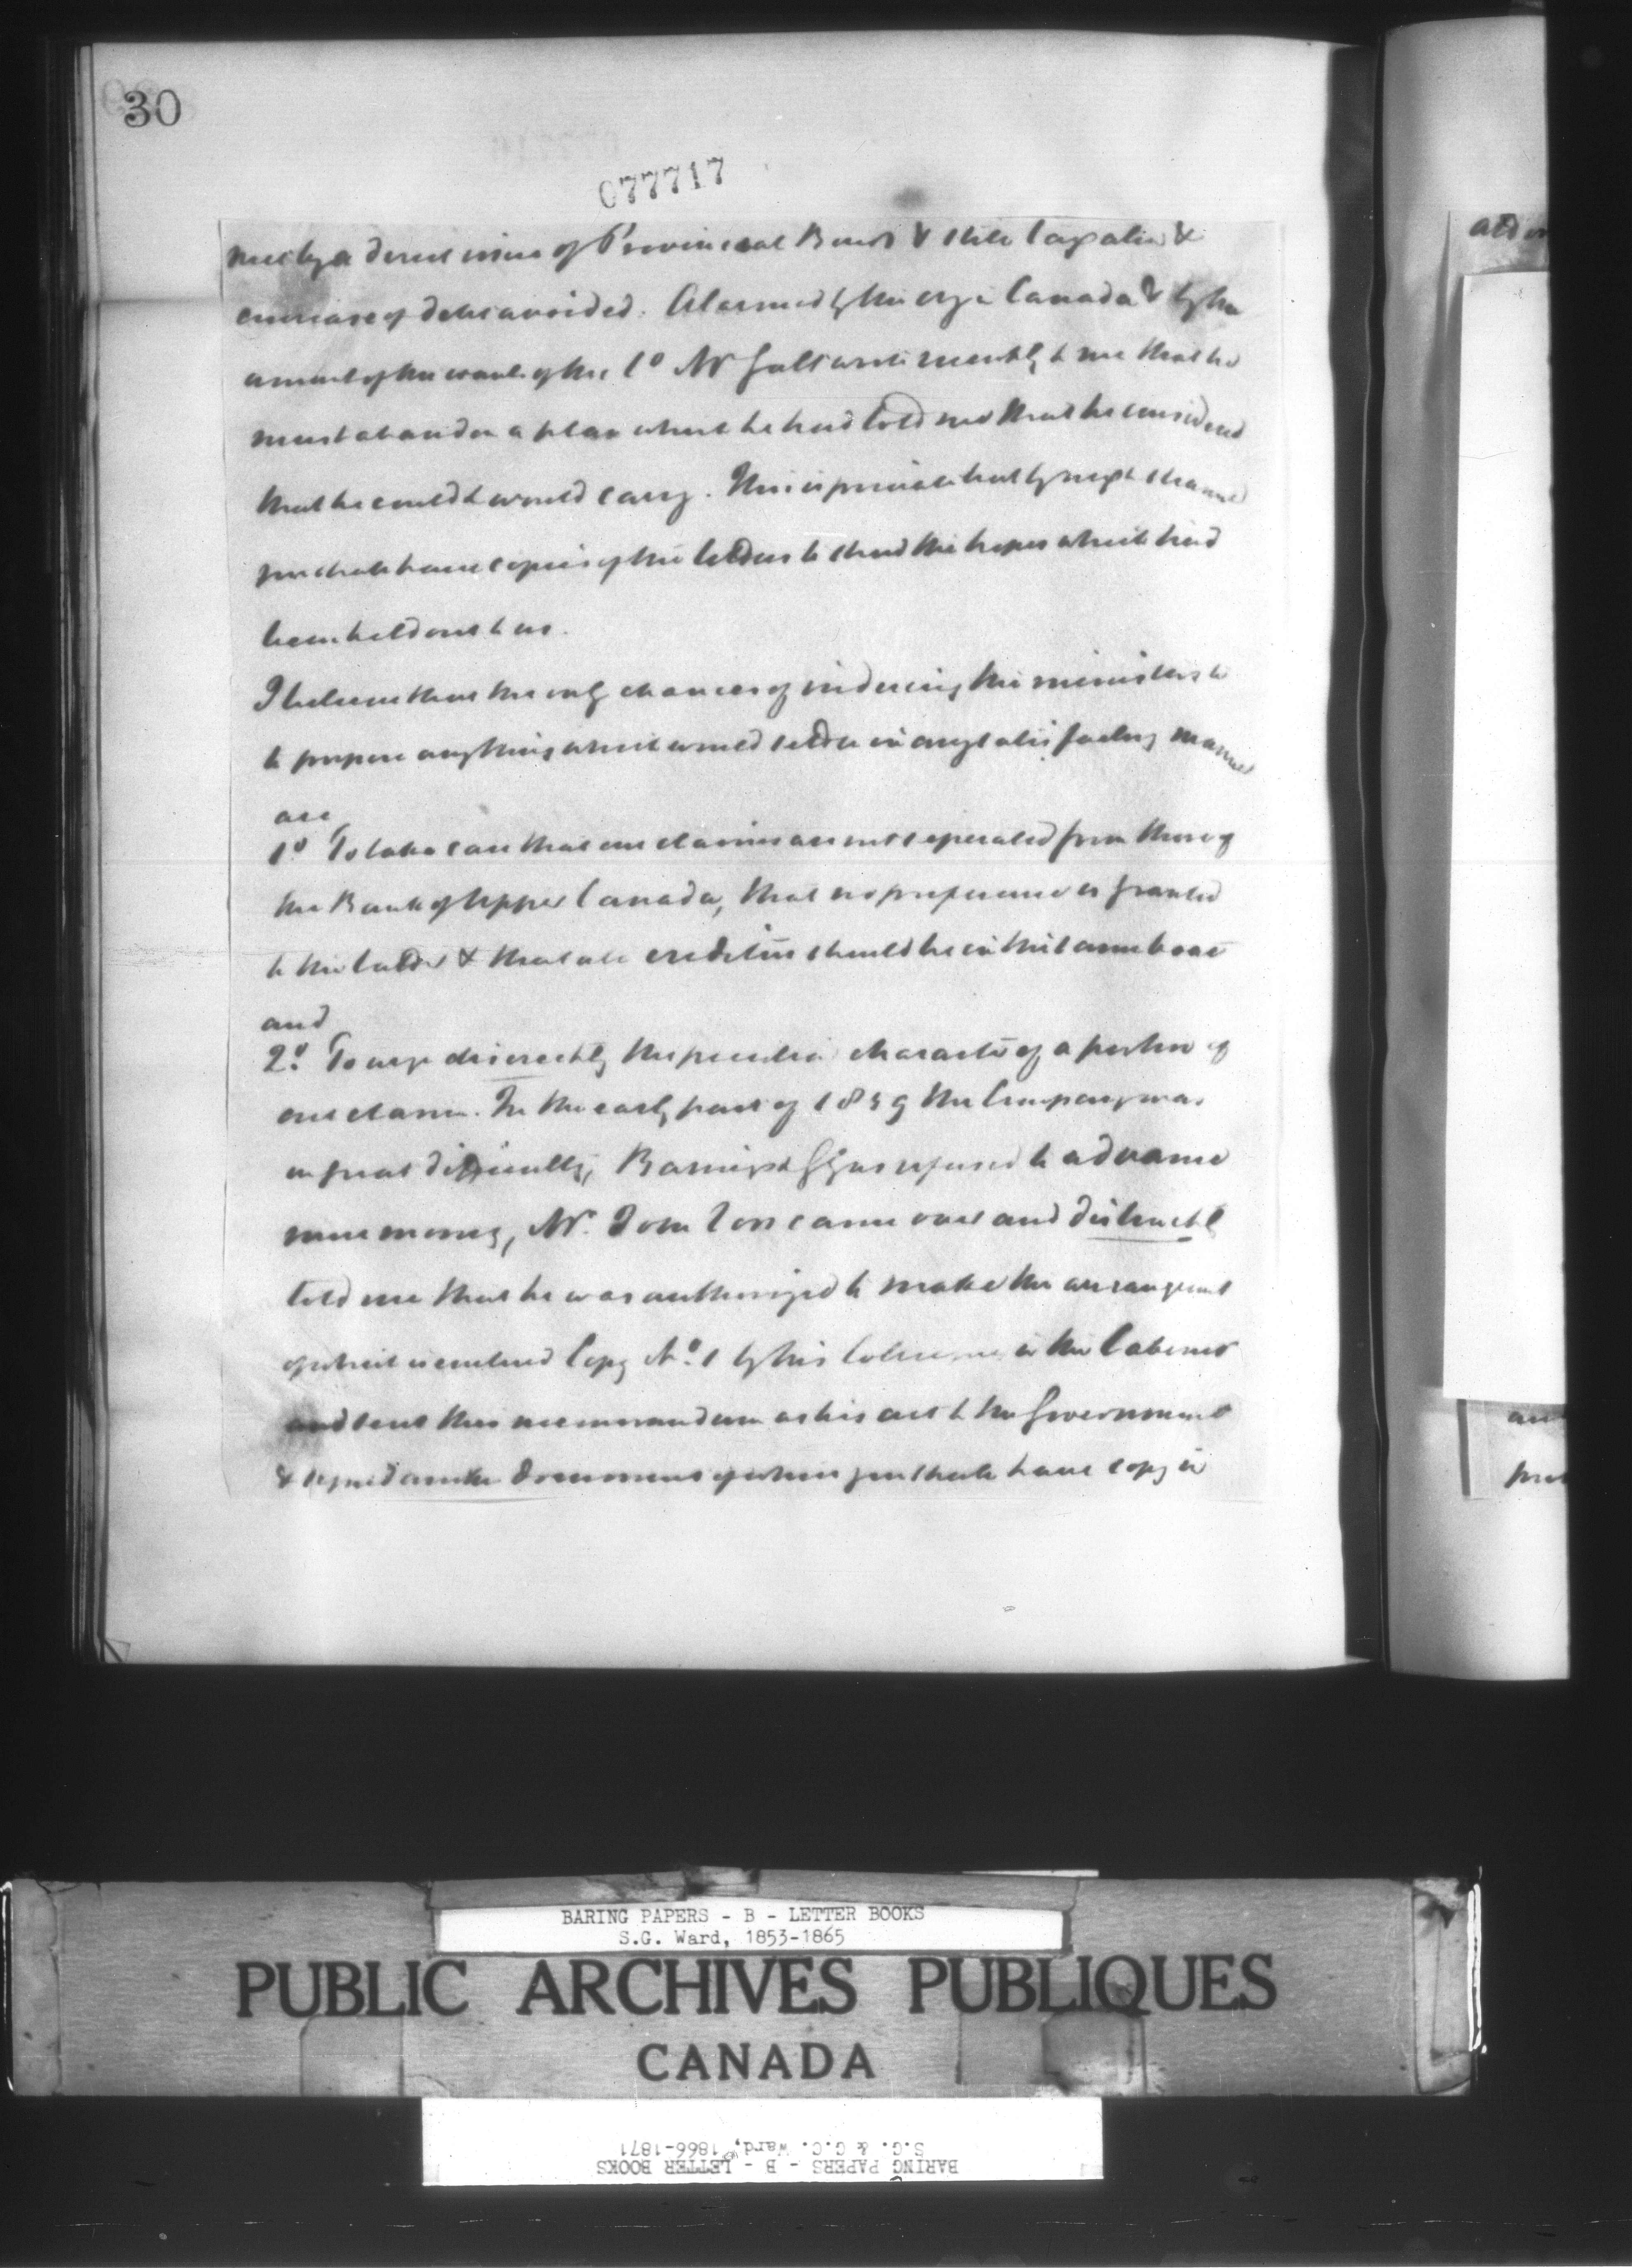 30
077717
met by a direct issue of Provincial Bonds & still taxation &
increase of debt avoided. Alarmed by the cry in Canada & by the
amount of the wants of the Co Mr Galt wrote recently to me that he
must abandon a plan which he had told me that he considered
that he could & would carry. This is private but by next steamer
you shall have copies of his letters to shew the hopes which had
been held out to us.
I believe that the only chances of inducing the ministers to
to propose anything which would settle in any satisfactory manner
are
1º To take care that our claims are not seperated from those of
the Bank of Upper Canada, that no preference is granted
to the latter & that all creditors should be in the same boat
and
2º To urge discreetly the peculiar character of a portion of
our claim. In the early part of 1859 the Company was
in great difficulty, Barings & GG & Co refused to advance
more money, Mr. John Ross came over and distinctly
told me that he was authorized to make the arrangement
of which is enclosed Copy No. 1 by his Colleagues in the Cabinet
and sent this memorandum as his act to the Government
& signed another document of which you shall have copy in
BARING PAPERS - B - LETTER BOOKS
S.G. Ward, 1853-1865
PUBLIC ARCHIVES PUBLIQUES
CANADA
BARING PAPERS - B - LETTER BOOKS
S.G. & G.C. Ward, 1866-1871